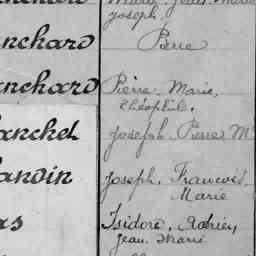 Joseph.
anchard Pierre
anchard Pierre Marie,
Théophile.
anchet Joseph Pierre M
anoin Joseph, François
Marie
as Isidore, Adrien
Jean, Marie